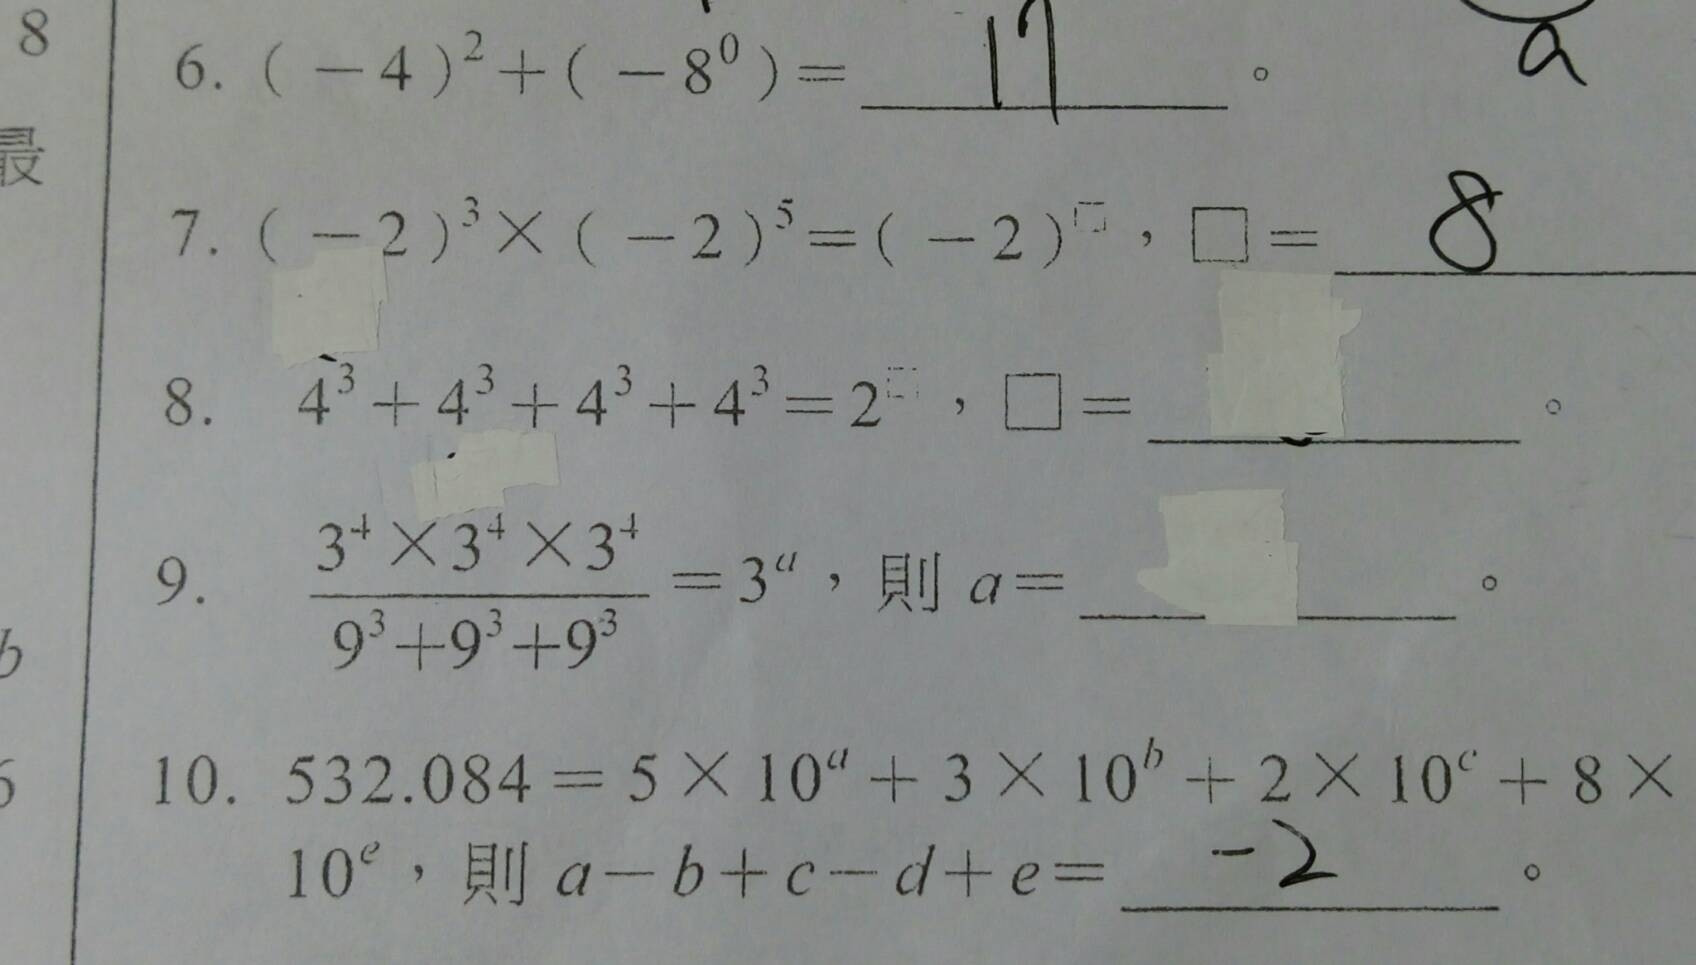 8
6. ( -4 )² + ( -8⁰ ) = 17 。
a
最
7. ( -2 )³ × ( -2 )⁵ = ( -2 )□ , □ = 8
8. 4³ + 4³ + 4³ + 4³ = 2□ , □ = 。
9. 3⁴ × 3⁴ × 3⁴ / 9³ + 9³ + 9³ = 3ᵃ , 則 a = 。
b
10. 532.084 = 5 × 10ᵃ + 3 × 10ᵇ + 2 × 10ᶜ + 8 ×
10ᵉ , 則 a - b + c - d + e = -2 。